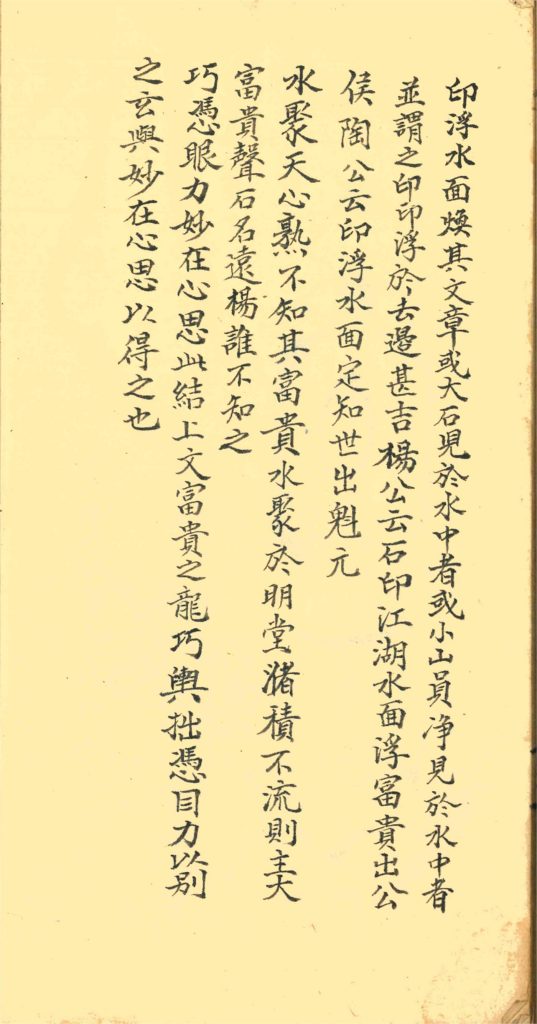 印浮水面焕其文章或大石見於水中者或小山員净見於水中者
並謂之印印浮於去邊甚吉楊公云石印江湖水面浮富貴出公
侯陶公云印浮水面定知世出魁元
水聚天心熟不知其富貴水聚於明堂潴積不流則主大
富貴聲石名遠楊誰不知之
巧憑眼力妙在心思此結上文富貴之龍巧與拙憑目力以别
之玄與妙在心思以得之也